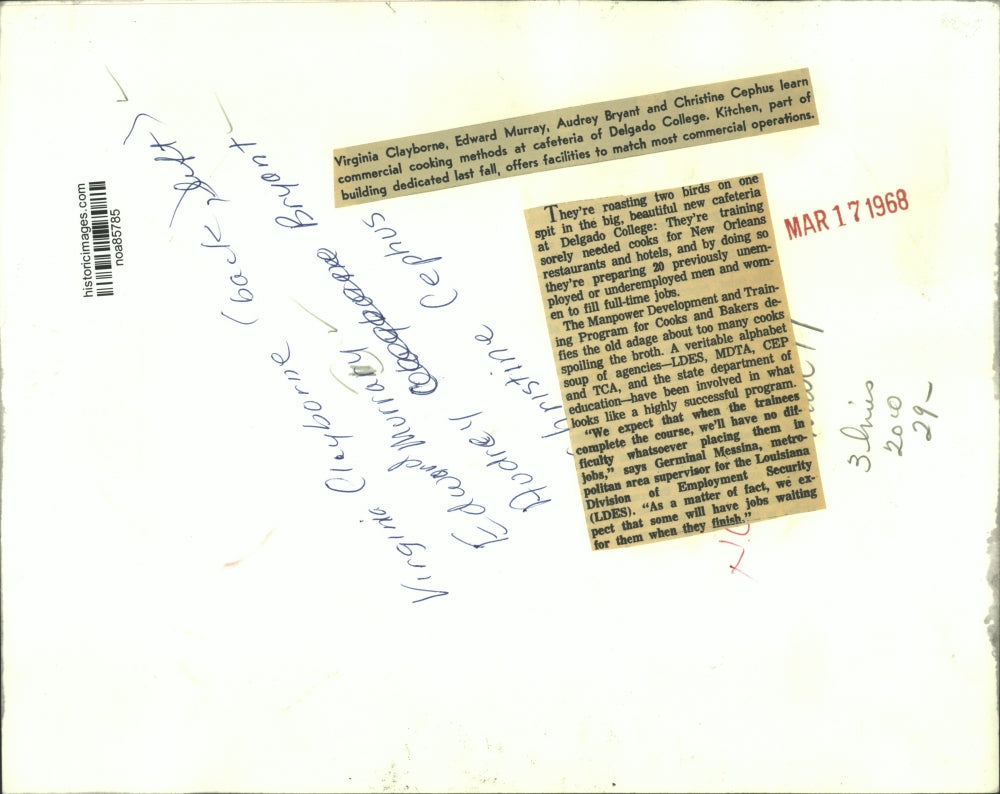 Virginia Clayborne, Edward Murray, Audrey Bryant and Christine Cephus learn
commercial cooking methods at cafeteria of Delgado College. Kitchen, part of
building dedicated last fall, offers facilities to match most commercial operations.
They're roasting two birds on one
spit in the big, beautiful new cafeteria
at Delgado College: They're training
sorely needed cooks for New Orleans
restaurants and hotels, and by doing so
they're preparing 20 previously unem-
ployed or underemployed men and wom-
en to fill full-time jobs.
The Manpower Development and Train-
ing Program for Cooks and Bakers de-
fies the old adage about too many cooks
spoiling the broth. A veritable alphabet
soup of agencies—LDES, MDTA, CEP
and TCA, and the state department of
education—have been involved in what
looks like a highly successful program.
"We expect that when the trainees
complete the course, we'll have no dif-
ficulty whatsoever placing them in
jobs," says Germinal Messina, metro-
politan area supervisor for the Louisiana
Division of Employment Security
(LDES). "As a matter of fact, we ex-
pect that some will have jobs waiting
for them when they finish."
MAR 17 1968
historicimages.com
noa85785
Virginia Clayborne (back, left)
Edward Murray
Audrey Bryant
Christine Cephus
3 lines
2010
29-